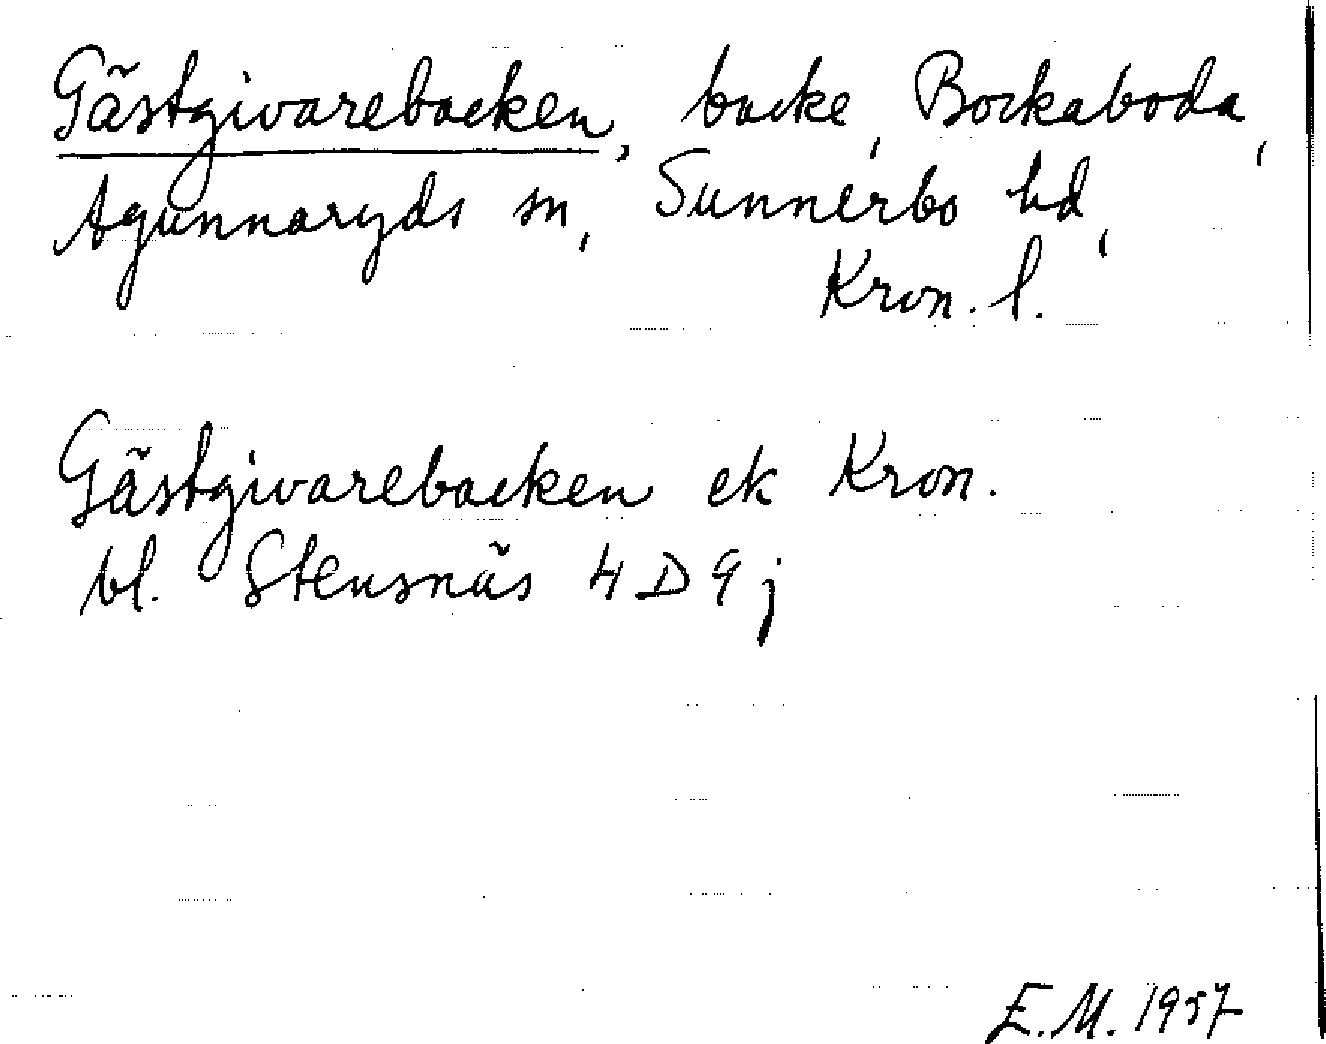 Gästgivarebacken, backe, Bockaboda,
Agunnaryds sn, Sunnerbo hd,
Kron. l.
Gästgivarebacken ek Kron.
bl. Stensnäs 4D9j
E.M. 1957